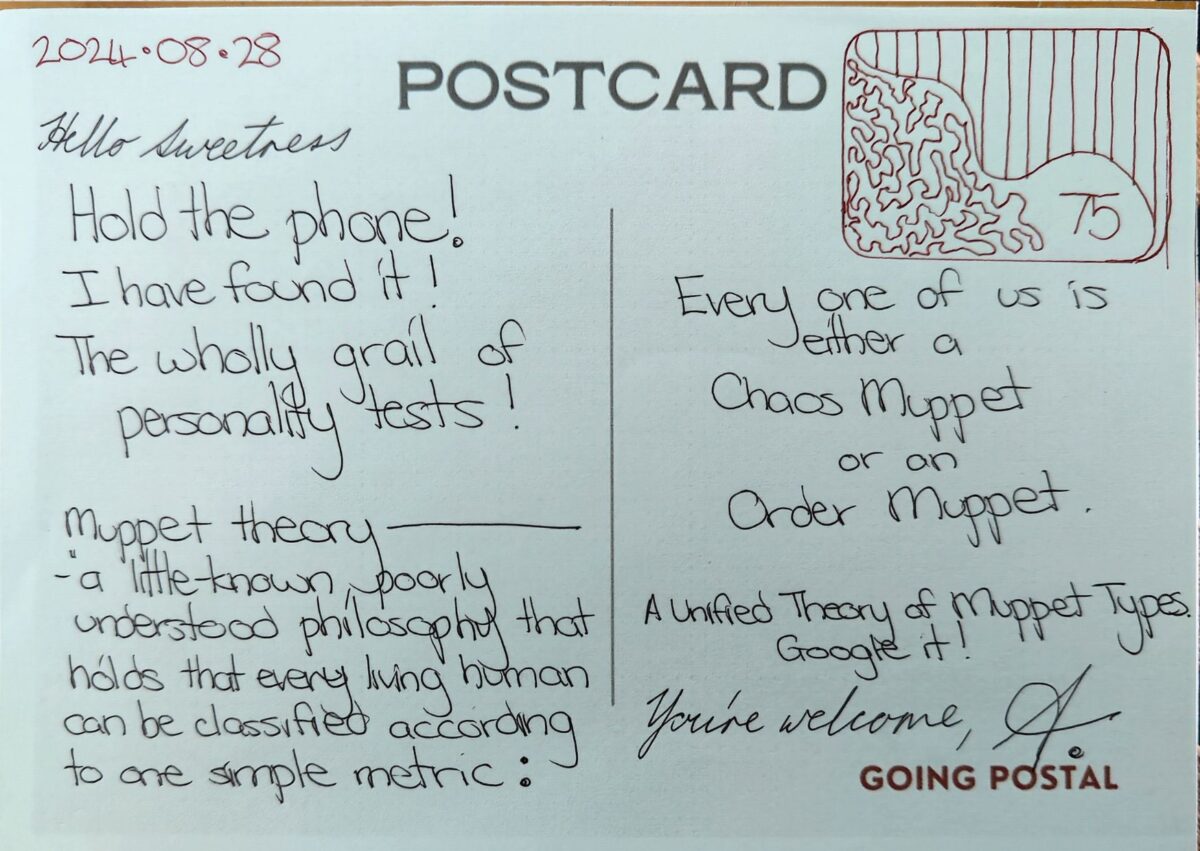 2024·08·28
POSTCARD
75
Hello Sweetness
Hold the phone!
I have found it!
The wholly grail of
personality tests!
Muppet theory
-"a little-known, poorly
understood philosophy that
holds that every living human
can be classified according
to one simple metric:
Every one of us is
either a
Chaos Muppet
or an
Order Muppet.
A Unified Theory of Muppet Types.
Google it!
You're welcome,
GOING POSTAL